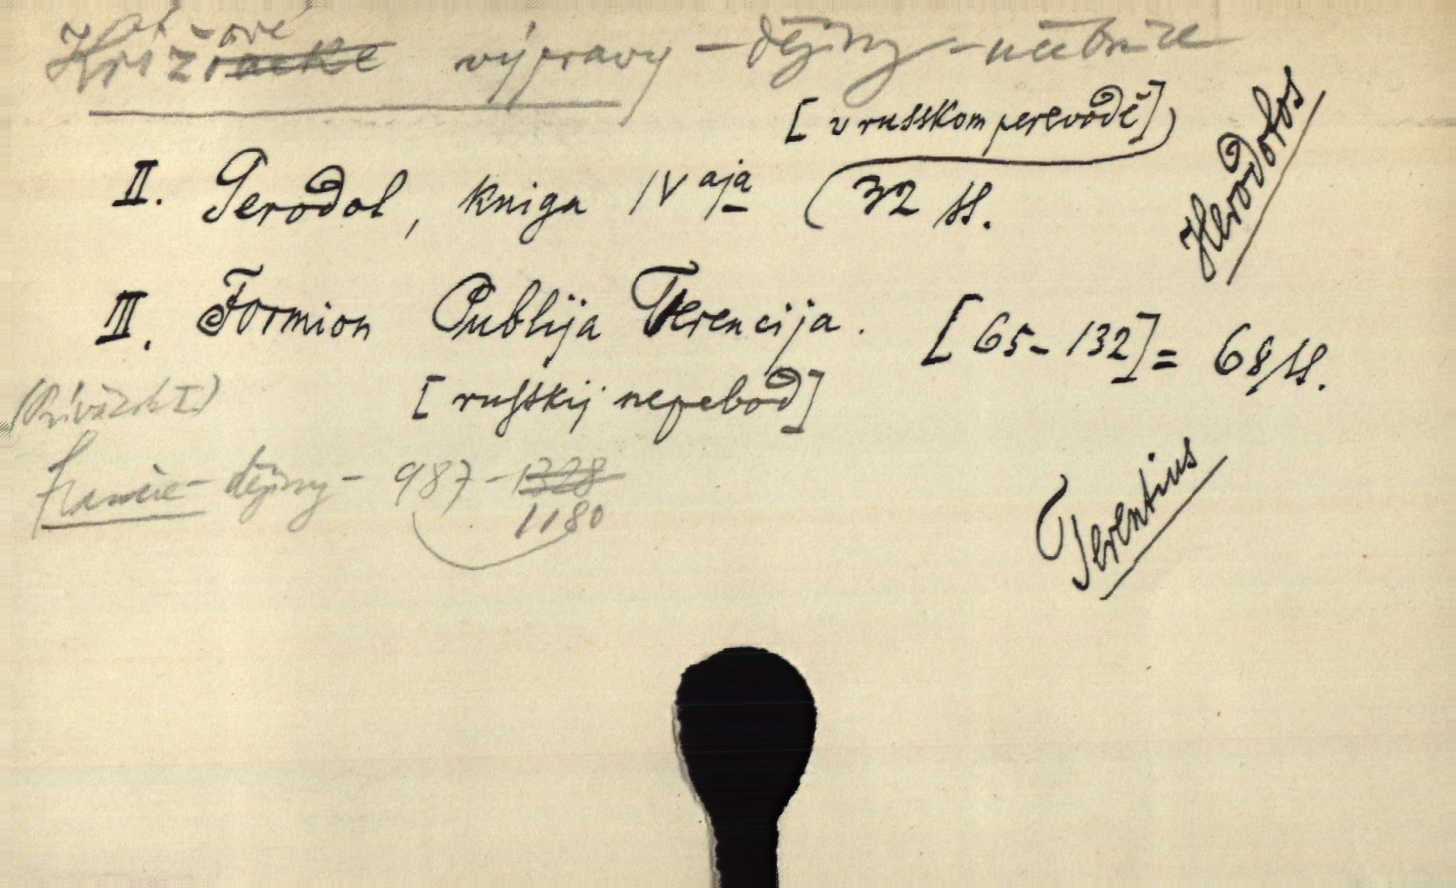 Křížové výpravy - dějiny - učebnice
[v russkom perevodě]
II. Gerodot, kniga IV aja (32 ss.
Herodotos
III. Formion Publija Terencija. [65-132] = 68 ss.
[russkij перевод]
(Přívazek I.)
Francie - dějiny - 987 - 1328
1180
Terentius